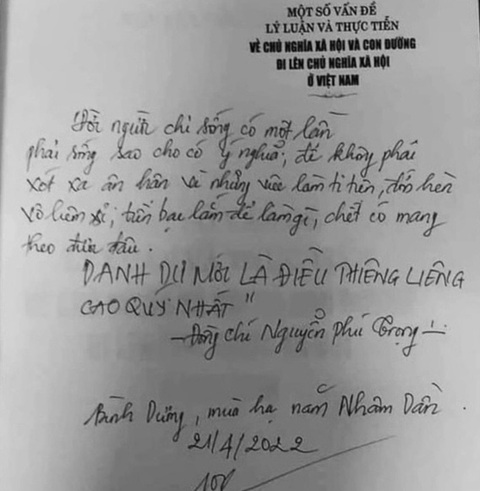 MỘT SỐ VẤN ĐỀ
LÝ LUẬN VÀ THỰC TIỄN
VỀ CHỦ NGHĨA XÃ HỘI VÀ CON ĐƯỜNG
ĐI LÊN CHỦ NGHĨA XÃ HỘI
Ở VIỆT NAM
"Đời người chỉ sống có một lần
phải sống sao cho có ý nghĩa; để không phải
xót xa ân hận về những việc làm ti tiện, đớn hèn
vô liêm sỉ; tiền bạc lắm để làm gì, chết có mang
theo được đâu.
DANH DỰ MỚI LÀ ĐIỀU THIÊNG LIÊNG
CAO QUÝ NHẤT"
- Đồng chí Nguyễn Phú Trọng -
Bình Dương, mùa hạ năm Nhâm Dần.
21/4/2022